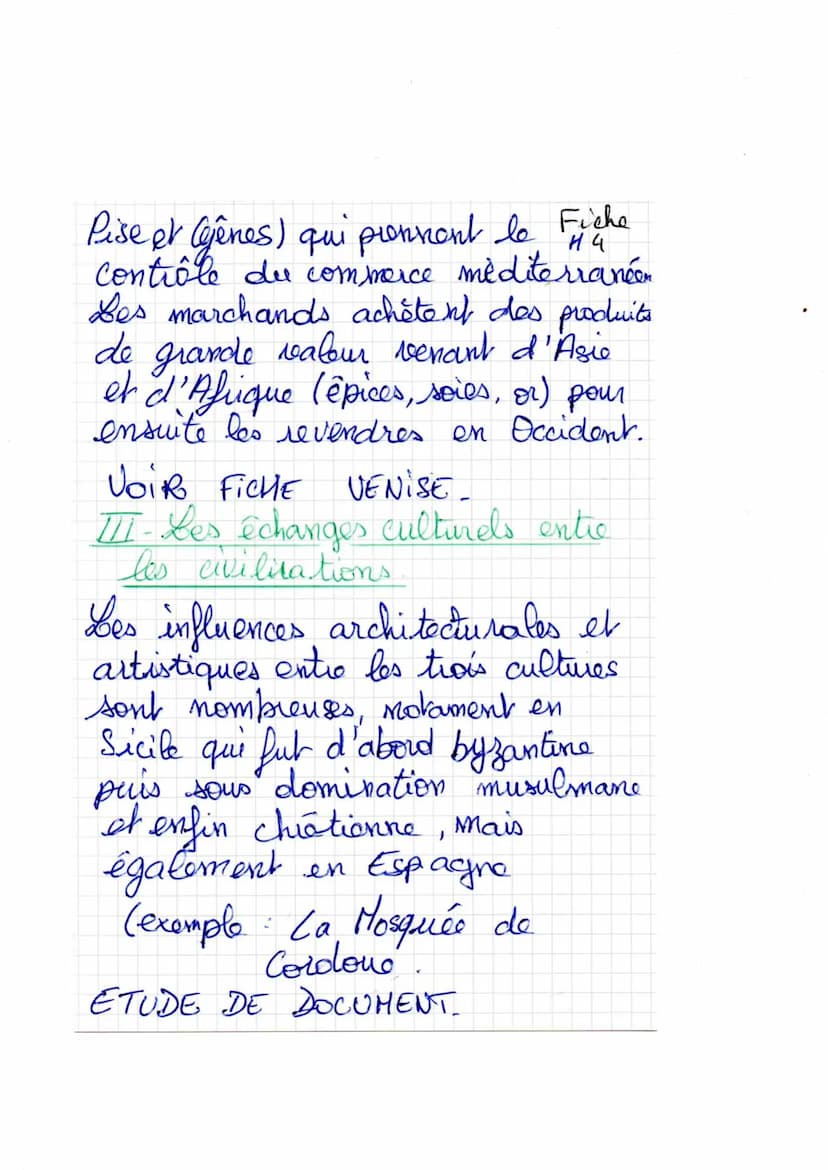 Pise et Gênes) qui prennent le
Fiche
H4
contrôle du commerce méditerranéen
Les marchands achètent des produits
de grande valeur venant d'Asie
et d'Afrique (épices, soies, or) pour
ensuite les revendres en Occident.
VOIR FICHE VENISE-
III-Les échanges culturels entre
les civilisations
Les influences architecturales et
artistiques entre les trois cultures
sont nombreuses, notament en
Sicile qui fut d'abord byzantine
puis sous domination musulmane
et enfin chrétienne, mais
également en Espagne
(exemple : La Mosquée de
Cordoue.
ETUDE DE DOCUMENT-